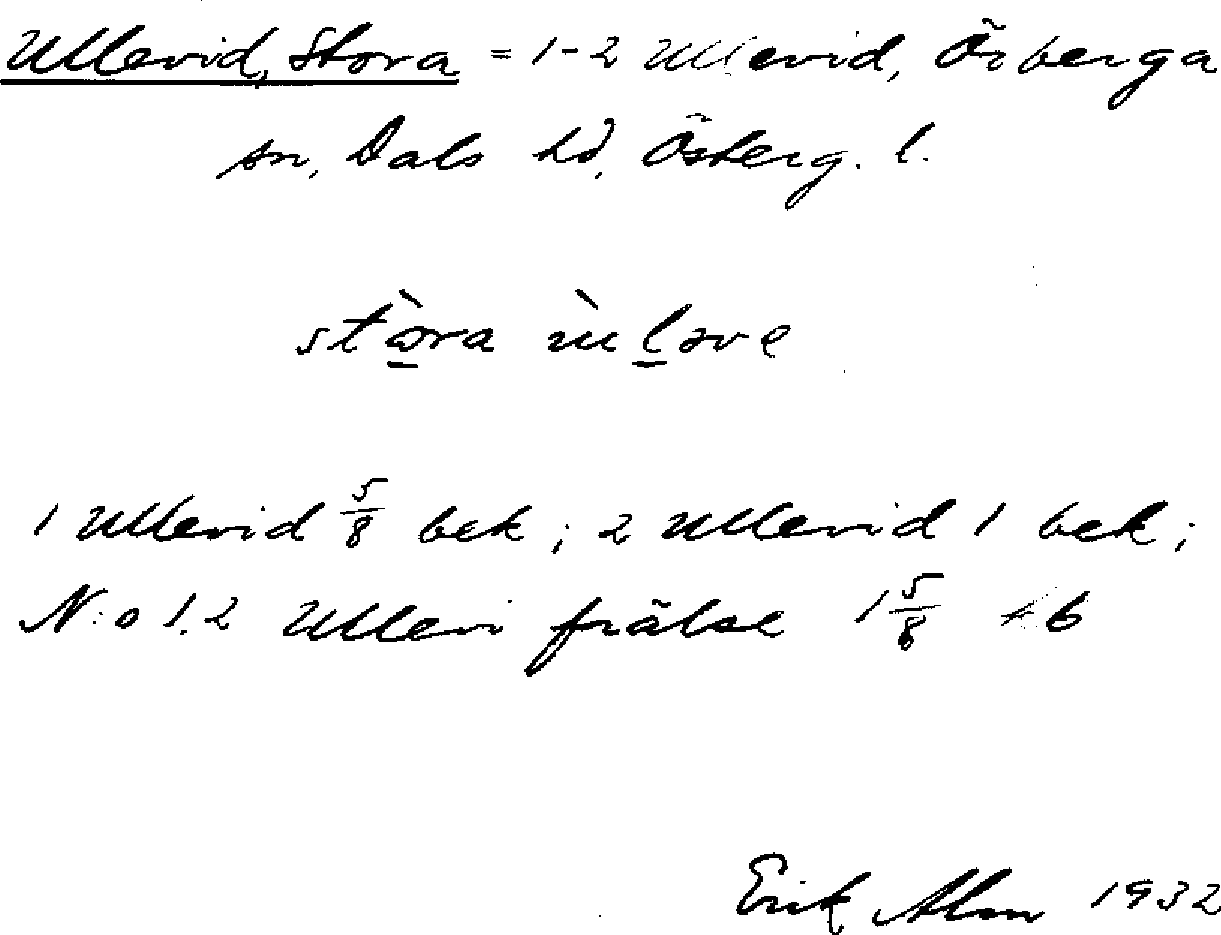 Ullevid, Stora = 1-2 Ullevid, Örberga
sn, Dals hd, Österg. l.
stòra ùlǝve
1 Ullevid 5/8 bek; 2 Ullevid 1 bek;
N:o 1.2 Ullevi frälse 1 5/8
Erik Alm 1932